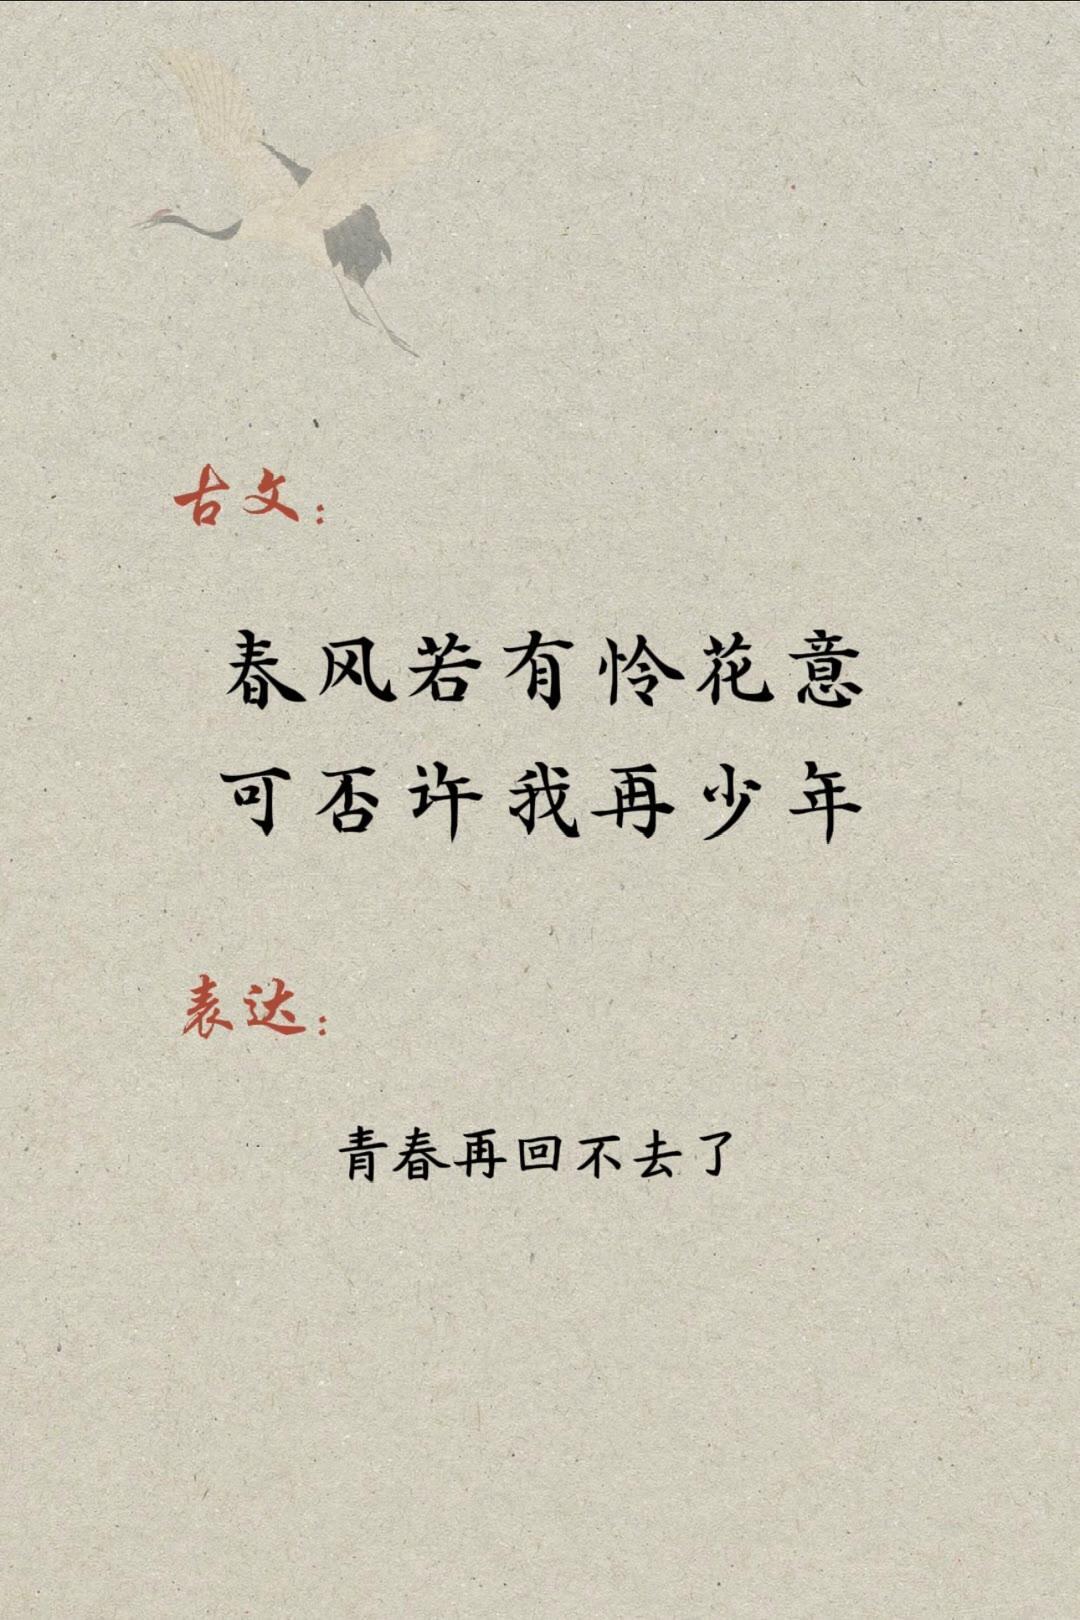 古文：
春风若有怜花意
可否许我再少年
表达：
青春再回不去了